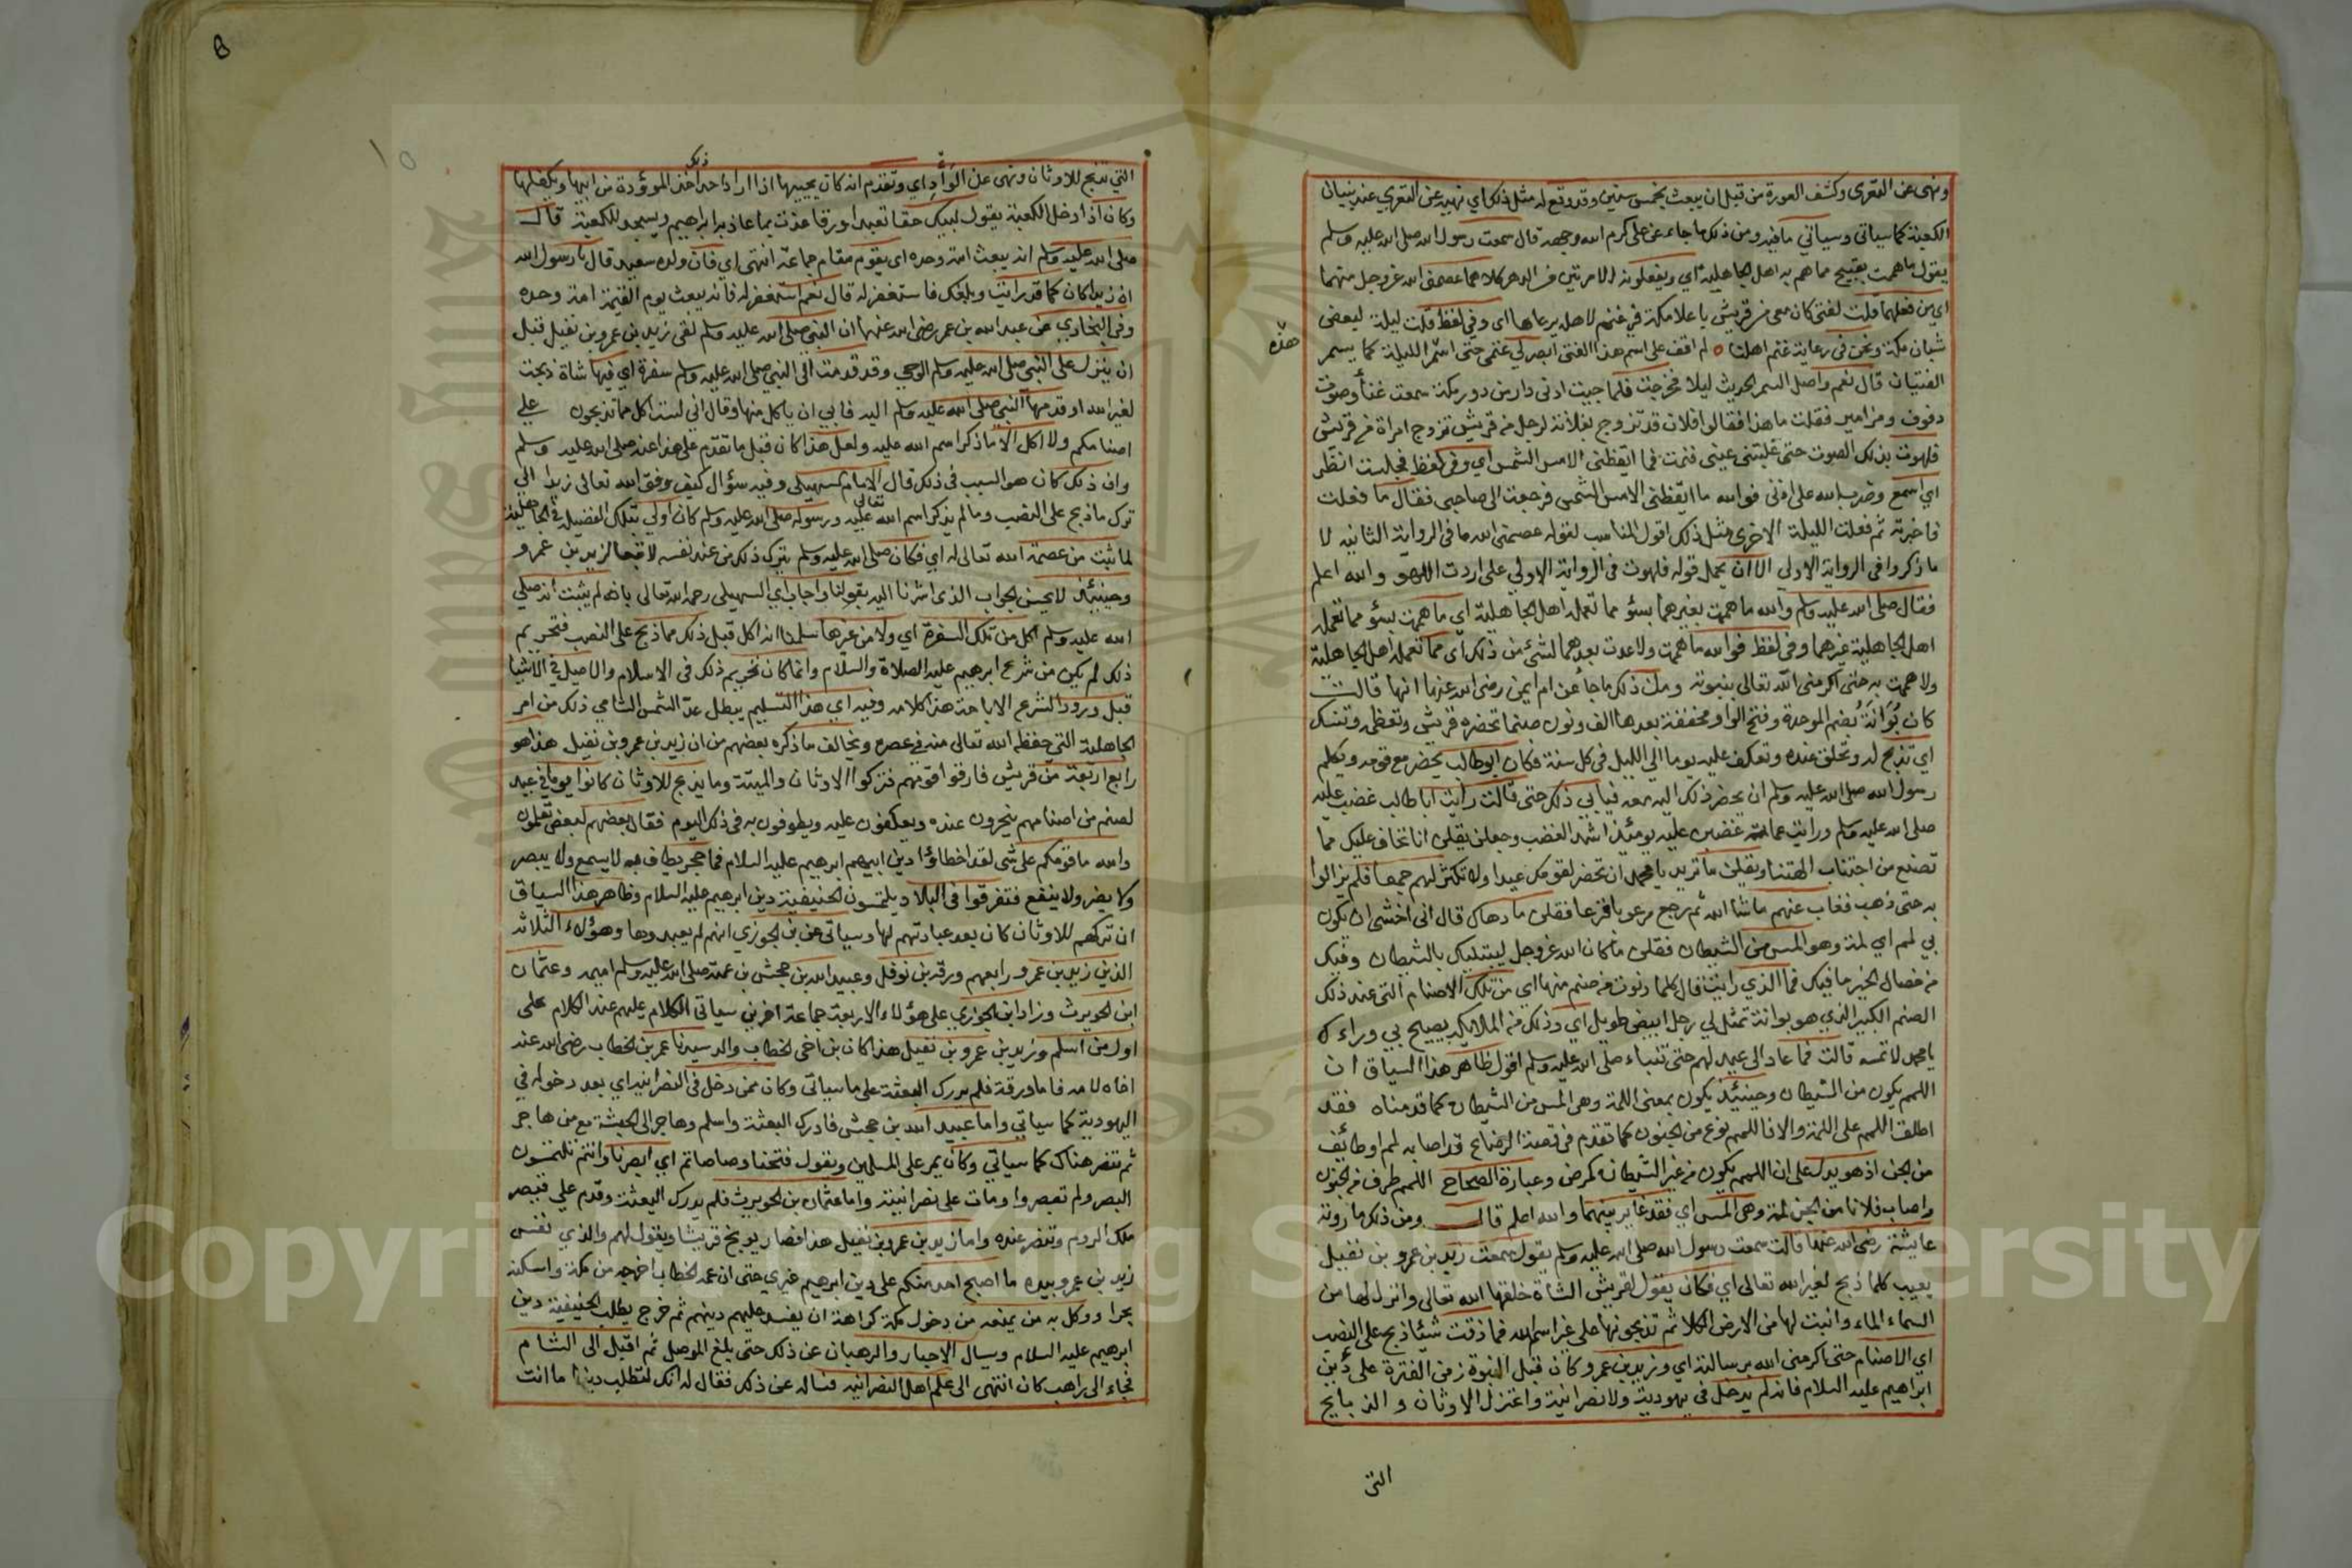 ونهى عن التعرى وكشف العورة من قبل ان يبعث بخمس سنين وقد وقع له مثل ذلك اي نهيه عن التعري عند بنيان
الكعبة كما سياتى وسياتي ما فيه ومن ذلك ما جاء عن على كرم الله وجهه قال سمعت رسول الله صلى الله عليه وسلم
يقول ما هممت بقبيح مما هم به اهل الجاهلية اي ويفعلونه الا مرتين من الدهر كلاهما عصمنى الله عز وجل منهما
اي من فعلهما قلت لفتى كان معى من قريش با علا مكة فى غنم لاهله يرعاها اى وفي لفظ قلت ليلة لبعض
شبان مكة ونحن فى رعاية غنم اهلنا لم اقف على اسم هذا الفتى ابصر لي غنمى حتى اسمر الليلة كما يسمر
هذه
الفتيان قال نعم واصل السمر الحديث ليلا فخرجت فلما جيت ادنى دار من دور مكة سمعت غنأ وصوت
دفوف ومزامير فقلت ما هذا فقالوا فلان قد تزوج بفلانة لرجل من قريش تزوج امراة من قريش
فلهوت بذلك الصوت حتى غلبتنى عينى فنمت فما ايقظنى الا مس الشمس اي وفى لفظ فجلست انظر
اي اسمع وضرب الله على اذنى فوالله ما ايقظنى الا مس الشمس فرجعت الى صاحبى فقال ما فعلت
فاخبرته ثم فعلت الليلة الاخرى مثل ذلك اقول المناسب لقوله عصمنى الله ما فى الرواية الثانيه لا
ما ذكروا فى الرواية الاولى الا ان يحمل قوله فلهوت فى الرواية الاولي على اردت اللهو والله اعلم
فقال صلى الله عليه وسلم والله ما هممت بغيرهما بسؤ مما تعمله اهل الجاهلية اي ما هممت بسؤ مما تعمله
اهل الجاهلية غيرهما وفى لفظ فوالله ما هممت ولا عدت بعدهما لشئ من ذلك اى مما تعمله اهل الجاهلية
ولا هممت به حتى اكرمنى الله تعالى بنبوته ومن ذلك ما جأ عن ام ايمن رضى الله عنها انها قالت
كان بُوَانَة بُضم الموحدة وفتح الواو مخففة بعدها الف ونون صنما تحضره قريش وتعظمه وتنسك
اي تذبح له وتحلق عنده وتعكف عليه يوما الى الليل فى كل سنة فكان ابو طالب يحضر مع قومه ويكلم
رسول الله صلى الله عليه وسلم ان يحضر ذلك اليد معه فيابي ذلك حتى قالت رايت ابا طالب غضب عليه
صلى الله عليه وسلم ورايت عماته غضبن عليه يومئذ اشد الغضب وجعلن يقلن انا نخاف عليك مما
تصنع من اجتناب الهتنا ويقلن ما تريد يا محمد ان تحضر لقومك عيدا ولا تكثر لهم جمعا فلم يزالوا
به حتى ذهب فغاب عنهم ما شا الله ثم رجع مرعوبا فزعا فقلن ما دهاك قال انى اخشى ان يكون
بي لمم اي لمة وهو المس من الشيطان فقلن ما كان الله عز وجل ليبتليك بالشيطان وفيك
من خصال الخير ما فيك فما الذي رايت قال كلما دنوت من صنم منها اي من تلك الاصنام التى عند ذلك
الصنم الكبير الذي هو بوانة تمثل لي رجل ابيض طويل اي وذلك من الملائكة يصيح بي وراءك
يا محمد لا تمسه قالت فما عاد الى عيد لهم حتى تنباء صلى الله عليه وسلم اقول ظاهر هذا السياق ان
اللمم يكون من الشيطان وحينئذ يكون بمعنى اللمة وهى المس من الشيطان كما قدمناه فقد
اطلق اللمم على اللمة والا فاللمم نوع من الجنون كما تقدم فى قصة الرضاع قد اصابه لمم او طائف
من الجن اذ هو يدل على ان اللمم يكون من غير الشيطان كمرض وعبارة الصحاح اللمم طرف من الجنون
واصاب فلانا من الجن لمة وهى المس اي فقد غاير بينهما والله اعلم قال ومن ذلك ما روته
عايشة رضى الله عنها قالت سمعت رسول الله صلى الله عليه وسلم يقول سمعت زيد بن عمرو بن نفيل
يعيب كلما ذبح لغير الله تعالى اي فكان يقول لقريش الشاة خلقها الله تعالى وانزل لها من
السماء الماء وانبت لها من الارض الكلا ثم تذبحونها على غير اسم الله فما ذقت شيئا ذبح على النصب
اي الاصنام حتى اكرمنى الله برسالته اي وزيد بن عمرو كان قبل النبوة زمن الفترة على دين
ابراهيم عليه السلام فانه لم يدخل فى يهودية ولا نصرانية واعتزل الاوثان والذبايح
التى
التي تذبح للاوثان ونهى عن الوَأْدِ اي وتقدم انه كان يحييها اذا اراد احد ذلك اخذ الموؤدة من ابيها وتكفلها
وكان اذا دخل الكعبة يقول لبيك حقا تعبدا ورقا عذت بما عاذ به ابراهيم ويسجد للكعبة قال
صلى الله عليه وسلم انه يبعث امة وحده اى يقوم مقام جماعة انتهى اي فان ولده سعيد قال يا رسول الله
ان زيدا كان كما قد رايت وبلغك فاستغفر له قال نعم استغفر له فانه يبعث يوم القيمة امة وحده
وفى البخاري عن عبد الله بن عمر رضى الله عنهما ان النبي صلى الله عليه وسلم لقى زيد بن عمرو بن نفيل قبل
ان ينزل على النبى صلى الله عليه وسلم الوحى وقد قدمت الى النبى صلى الله عليه وسلم سفرة اي فيها شاة ذبحت
لغير الله او قدمها النبى صلى الله عليه وسلم اليه فابي ان ياكل منها وقال اني لست اكل مما تذبحون على
اصنامكم ولا اكل الا ما ذكر اسم الله عليه ولعل هذا كان قبل ما تقدم على هذا عنه صلى الله عليه وسلم
وان ذلك كان هو السبب فى ذلك قال الامام السهيلى وفيه سؤال كيف وفق الله تعالى زيدا الى
ترك ما ذبح على النصب وما لم يذكر اسم الله تعالى عليه ورسوله صلى الله عليه وسلم كان اولى بتلك الفضيلة فى الجاهلية
لما ثبت من عصمة الله تعالى له اي فكان صلى الله عليه وسلم يترك ذلك من عند نفسه لا تبعا لزيد بن عمرو
وحينئذ لا يحسن الجواب الذى اشرنا اليه بقولنا واجاب اي السهيلى رحمه الله تعالى بانه لم يثبت انه صلى
الله عليه وسلم اكل من تلك السفرة اي ولا من غيرها سلمنا انه اكل قبل ذلك مما ذبح على النصب فتحريم
ذلك لم يكن من شرع ابرهيم عليه الصلاة والسلام وانما كان تحريم ذلك فى الاسلام والاصل فى الاشيا
قبل ورود الشرع الاباحة هذا كلامه وفيه اي هذا التسليم يبطل عد الشمس الشامي ذلك من امر
الجاهلية التى حفظه الله تعالى منه فى عصره ويخالف ما ذكره بعضهم من ان زيد بن عمرو بن نفيل هذا هو
رابع اربعة من قريش فارقوا قومهم فتركوا الاوثان والميتة وما يذبح للاوثان كانوا يوما فى عيد
لصنم من اصنامهم ينحرون عنده ويعكفون عليه ويطوفون به فى ذلك اليوم فقال بعضهم لبعض تعلمون
والله ما قومكم على شى لقد اخطاؤا دين ابيهم ابرهيم عليه السلام فما حجر يطاف به لا يسمع ولا يبصر
ولا يضر ولا ينفع فتفرقوا فى البلاد يلتمسون الحنيفية دين ابرهيم عليه السلام وظاهر هذا السياق
ان تركهم للاوثان كان بعد عبادتهم لها وسياتى عن ابن الجوزي انهم لم يعبدوها وهؤلاء الثلاثة
الذين زيد بن عمرو رابعهم ورقة بن نوفل وعبيد الله بن جحش بن عمته صلى الله عليه وسلم اميمه وعثمان
ابن الحويرث وزاد ابن الجوزي على هؤلاء الاربعة جماعة اخرين سياتى الكلام عليهم عند الكلام على
اول من اسلم وزيد بن عمرو بن نفيل هذا كان بن اخى الخطاب والد سيدنا عمر بن الخطاب رضى الله عنه
اخاه لامه فاما ورقة فلم يدرك البعثة على ما سياتى وكان ممن دخل فى النصرانية اي بعد دخوله فى
اليهودية كما سياتي واما عبيد الله بن جحش فادرك البعثة واسلم وهاجر الى الحبشة مع من هاجر
ثم تنصر هناك كما سياتي وكان يمر على المسلمين ويقول فتحنا وصاصاتم اي ابصرنا وانتم تلتمسون
البصر ولم تبصروا ومات على نصرانيته واما عثمان بن الحويرث فلم يدرك البعثة وقدم على قيصر
ملك الروم وتنصر عنده واما زيد بن عمرو بن نفيل هذا فصار يوبخ قريشا ويقول لهم والذي نفس
زيد بن عمرو بيده ما اصبح احد منكم على دين ابرهيم غيري حتى ان عمه الخطاب اخرجه من مكة واسكنه
بحرا ووكل به من يمنعه من دخول مكة كراهة ان يفسد عليهم دينهم ثم خرج يطلب الحنيفية دين
ابرهيم عليه السلام ويسال الاحبار والرهبان عن ذلك حتى بلغ الموصل ثم اقبل الى الشام
فجاء الى راهب كان انتهى الى علم اهل النصرانية فساله عن ذلك فقال له انك لتطلب دينا ما انت
Copyright © King Saud University